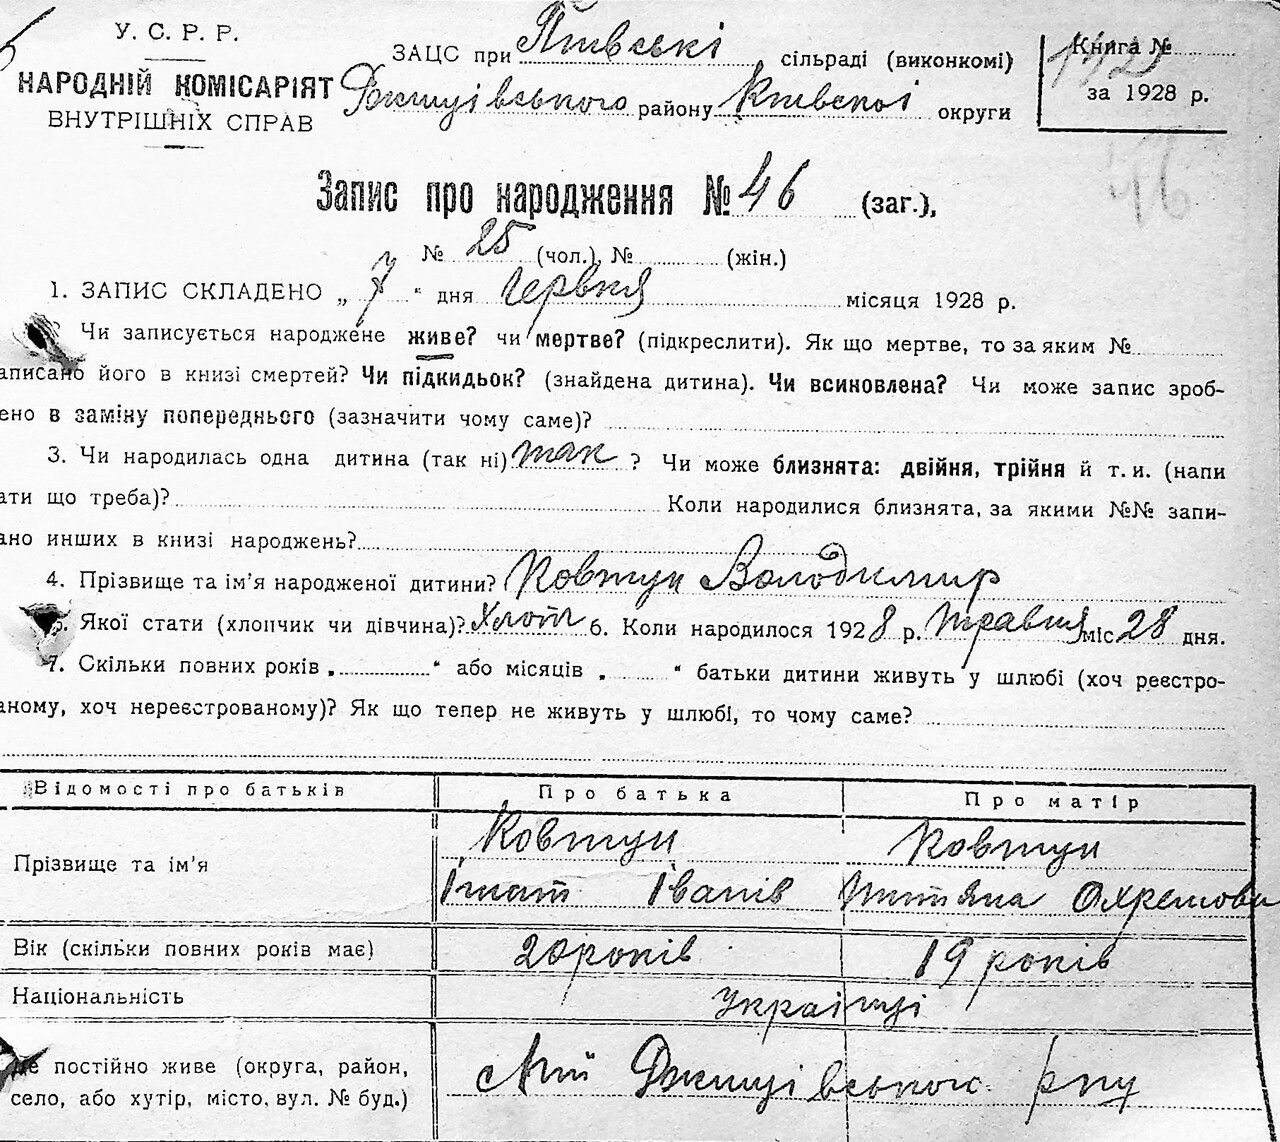 У. С. Р. Р.
НАРОДНІЙ КОМІСАРІЯТ
ВНУТРІШНІХ СПРАВ
ЗАЦС при сільраді (виконкомі)
району Київської округи
Книга №
за 1928 р.
46
Запис про народження № 46 (заг.),
№ 25 (чол.), № (жін.)
1. ЗАПИС СКЛАДЕНО „ 7 “ дня Червня місяця 1928 р.
Чи записується народжене живе? чи мертве? (підкреслити). Як що мертве, то за яким №
аписано його в книзі смертей? Чи підкидьок? (знайдена дитина). Чи всиновлена? Чи може запис зроб-
ено в заміну попереднього (зазначити чому саме)?
3. Чи народилась одна дитина (так ні) так ? Чи може близнята: двійня, трійня й т. и. (напи
ати що треба)? Коли народилися близнята, за якими №№ запи-
ано инших в книзі народжень?
4. Прізвище та ім’я народженої дитини? Ковтун Володимир
5. Якої стати (хлопчик чи дівчина)? Хлоп 6. Коли народилося 1928 р. Травня міс 28 дня.
7. Скільки повних років „ “ або місяців „ “ батьки дитини живуть у шлюбі (хоч реєстро-
аному, хоч нереєстрованому)? Як що тепер не живуть у шлюбі, то чому саме?
Відомості про батьків Про батька Про матір
Прізвище та ім’я Ковтун Ковтун
Ігнат Іванів Титяна Охремови
Вік (скільки повних років має) 20 років 19 років
Національність Українці
де постійно живе (округа, район,
село, або хутір, місто, вул. № буд.)